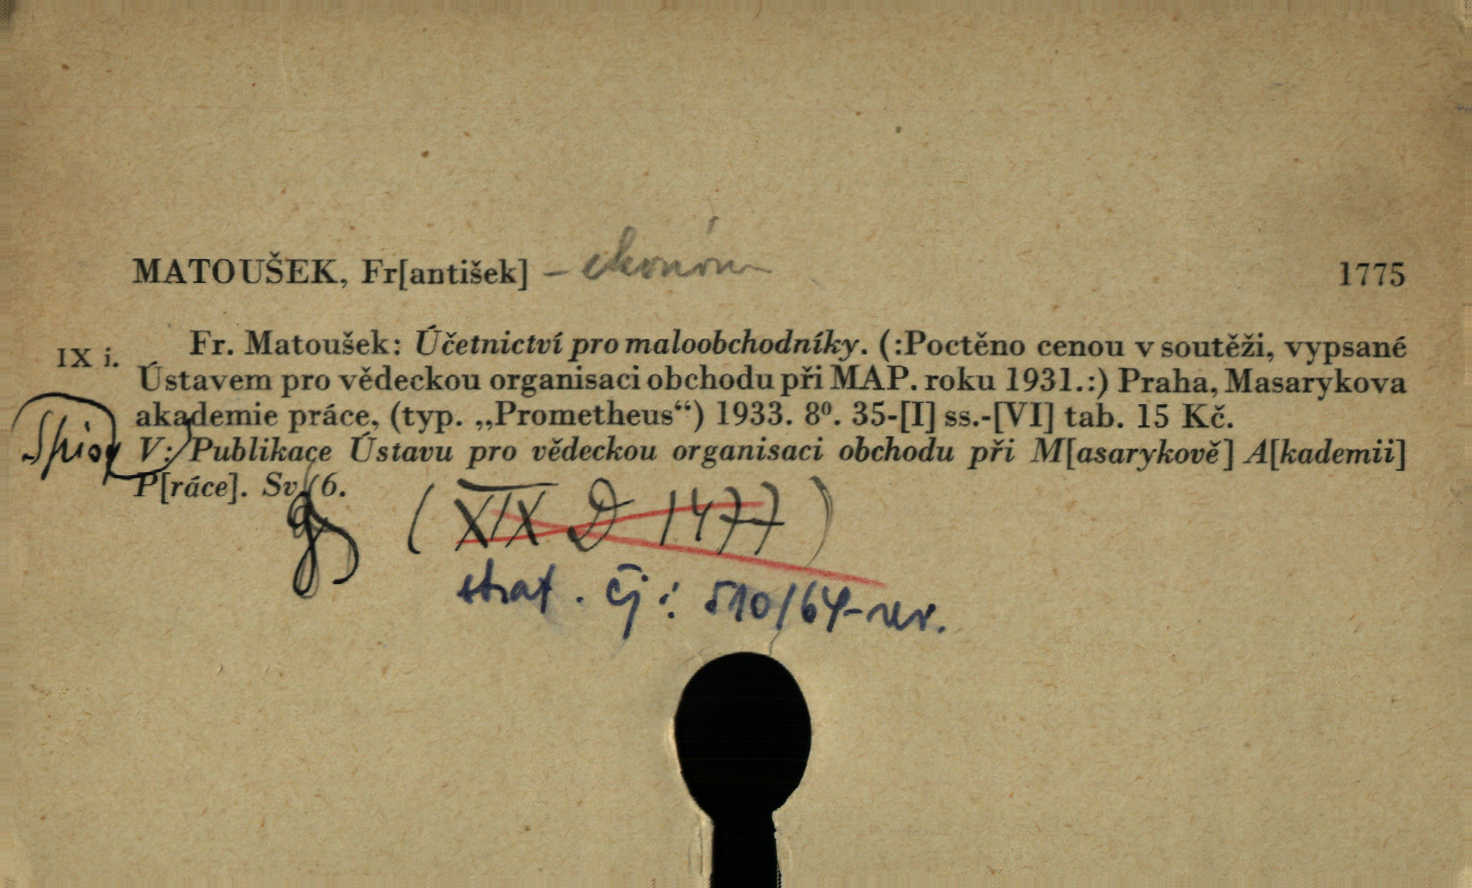 MATOUŠEK, Fr[antišek] – ekonóm 1775
IX i. Fr. Matoušek: Účetnictví pro maloobchodníky. (:Poctěno cenou v soutěži, vypsané
Ústavem pro vědeckou organisaci obchodu při MAP. roku 1931.:) Praha, Masarykova
akademie práce, (typ. „Prometheus“) 1933. 8⁰. 35-[I] ss.-[VI] tab. 15 Kč.
V: Publikace Ústavu pro vědeckou organisaci obchodu při M[asarykově] A[kademii]
P[ráce]. Sv. 6.
(XIX D 1477)
strat. čj: 510/64-rev.